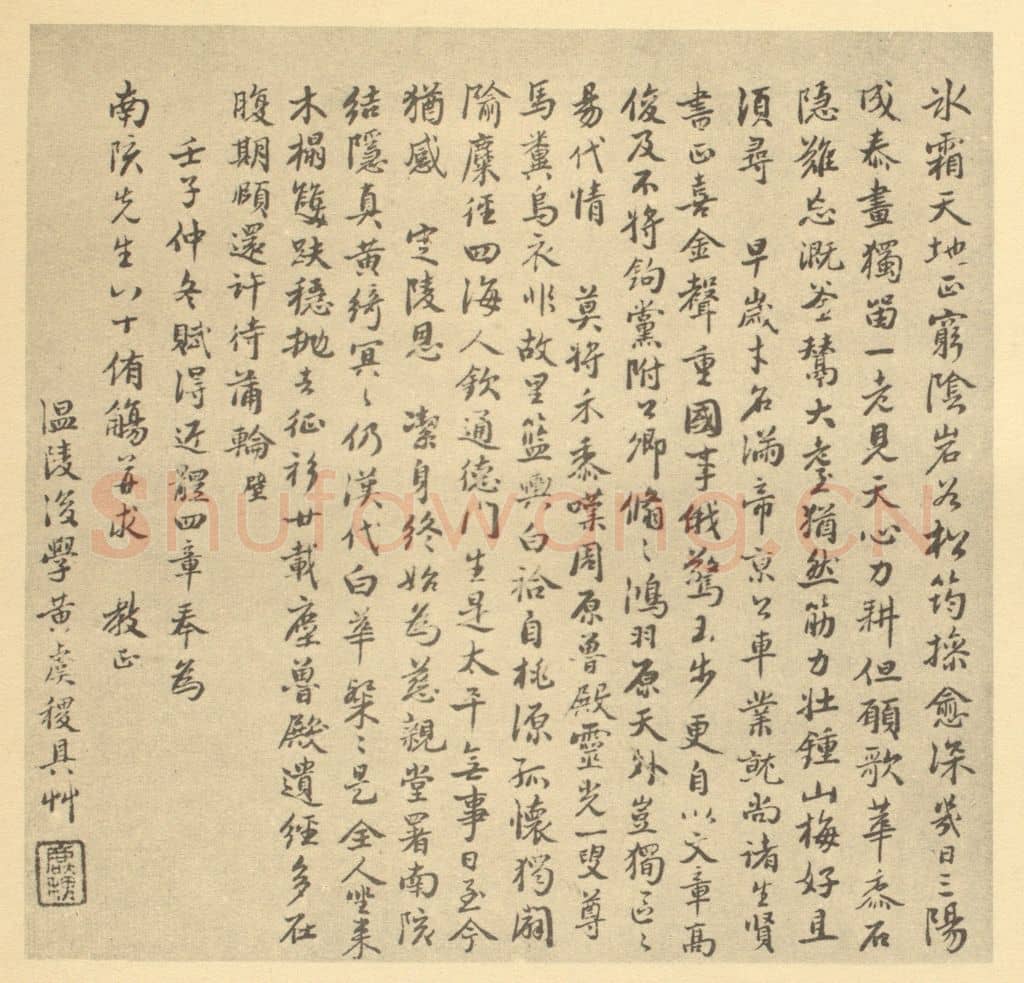 冰霜天地正窮陰岩谷松筠操愈深幾日三陽
成泰畫獨留一老見天心力耕但願歌華黍石
隱難忘溉釜鬵大耋猶然筋力壯鍾山梅好且
須尋 早歲才名滿帝京公車業就尚諸生賢
書正喜金聲重國事俄驚玉步更自以文章高
俊及不將鉤黨附公卿翛〻鴻羽原天外豈獨區〻
易代情 莫將禾黍嘆周原魯殿靈光一叟尊
馬糞烏衣非故里籃輿白祫自桃源孤懷獨闢
隃麋徑四海人欽通德門生是太平無事日至今
猶感 定陵恩 潔身終始為慈親堂署南陔
結隱真黃綺冥〻仍漢代白華粲〻是全人坐來
木榻雙趺穩拋去征衫廿載塵魯殿遺經多在
腹期頤還許待蒲輪壁
壬子仲冬賦得近體四章奉為
南陔先生八十侑觴並求 教正
溫陵後學黃虞稷具艸
Shufawang.CN